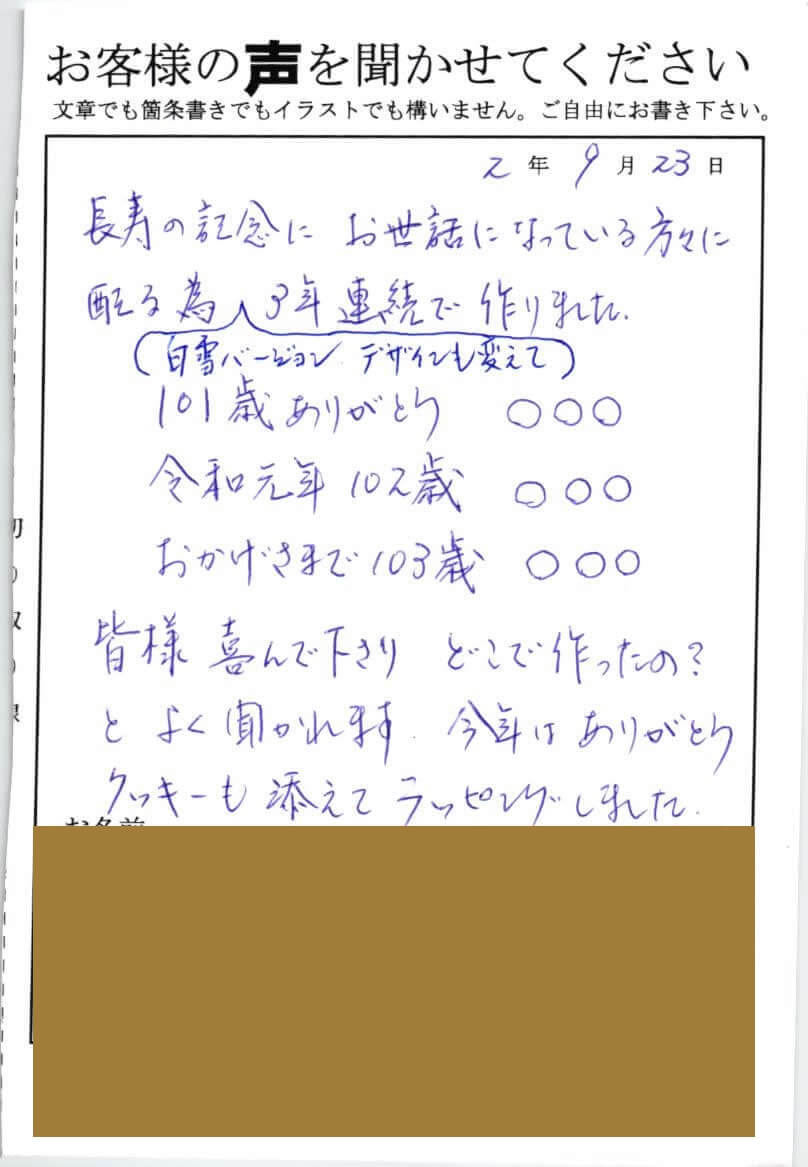 お客様の声を聞かせてください
文章でも箇条書きでもイラストでも構いません。ご自由にお書き下さい。
2年9月23日
長寿の記念に お世話になっている方々に
配る為 3年連続で作りました.
(白雪バージョン デザインも変えて)
101歳ありがとう ○○○
令和元年 102歳 ○○○
おかげさまで103歳 ○○○
皆様 喜んで下さり どこで作ったの?
と よく聞かれます. 今年は ありがとう
クッキーも 添えて ラッピングしました.
お名前